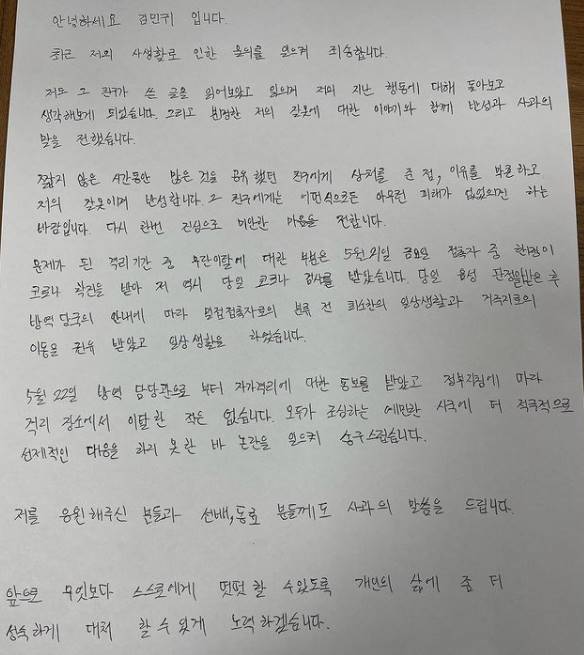 안녕하세요 김민귀 입니다.
최근 저의 사생활로 인한 물의를 일으켜 죄송합니다.
저도 그 친구가 쓴 글을 읽어보았고 읽으며 저의 지난 행동에 대해 돌아보고
생각해보게 되었습니다. 그리고 분명한 저의 잘못에 대한 이야기와 함께 반성과 사과의
말을 전했습니다.
짧지 않은 시간동안 많은 것을 공유했던 친구에게 상처를 준 점, 이유를 막론하고
저의 잘못이며 반성합니다. 그 친구에게는 어떤식으로든 아무런 피해가 없었으면 하는
바람입니다. 다시 한번 진심으로 미안한 마음을 전합니다.
문제가 된 격리기간 중 무단이탈에 대한 부분은 5월 21일 금요일 접촉자 중 한명이
코로나 확진을 받아 저 역시 당일 코로나 검사를 받았습니다. 당일 음성 판정받은 후
방역 당국의 안내에 따라 밀접접촉자로의 분류 전 최소한의 일상생활과 거주지로의
이동을 권유 받았고 일상생활을 하였습니다.
5월 22일 방역 담당관으로 부터 자가격리에 대한 통보를 받았고 정부지침에 따라
격리 장소에서 이탈한 적은 없습니다. 모두가 조심하는 예민한 시국에 더 적극적으로
선제적인 대응을 하지 못한 바 논란을 일으켜 송구스럽습니다.
저를 응원해주신 분들과 선배, 동료 분들께도 사과의 말씀을 드립니다.
앞으로 무엇보다 스스로에게 떳떳할 수있도록 개인의 삶에 좀 더
성숙하게 대처 할 수 있게 노력하겠습니다.